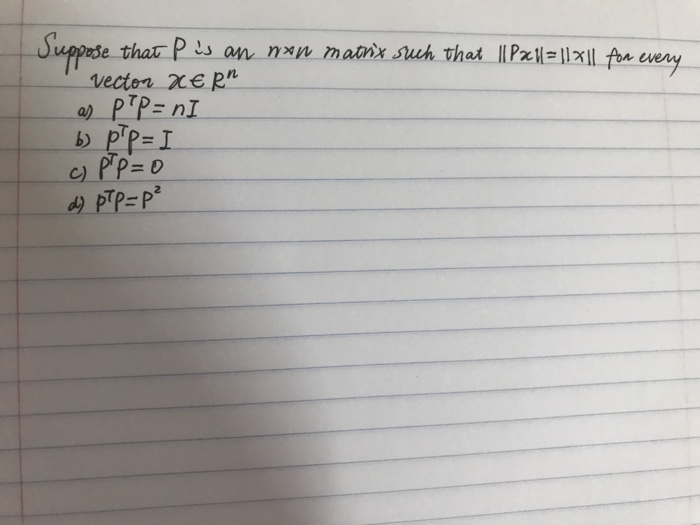 Suppose that P is an n×n matrix such that ||Px||=||x|| for every
vector x∈Rⁿ
a) PᵀP=nI
b) PᵀP=I
c) PᵀP=0
d) PᵀP=P²